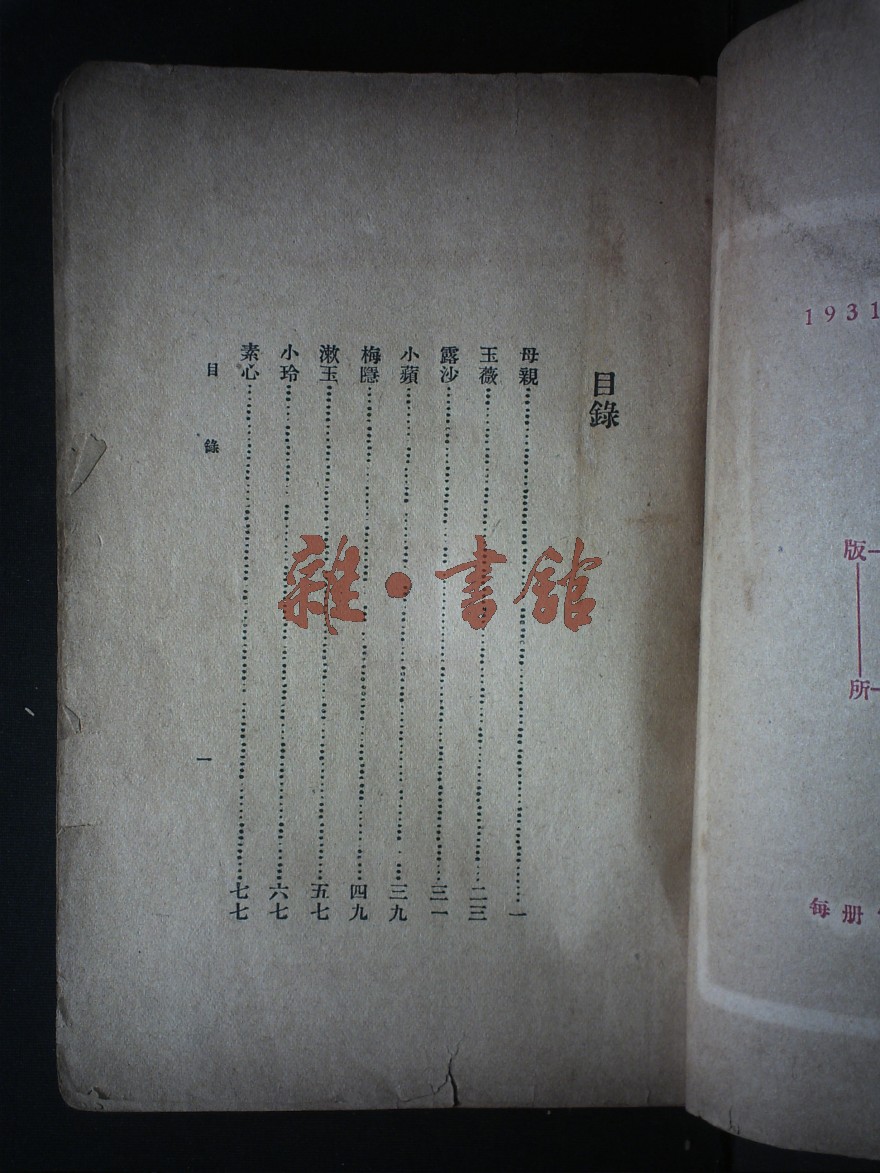 1931
版
所
每册
目錄
母親一
玉薇二三
露沙三一
小蘋三九
梅隱四九
漱玉五七
小玲六七
素心七七
目錄
一
雜·書館